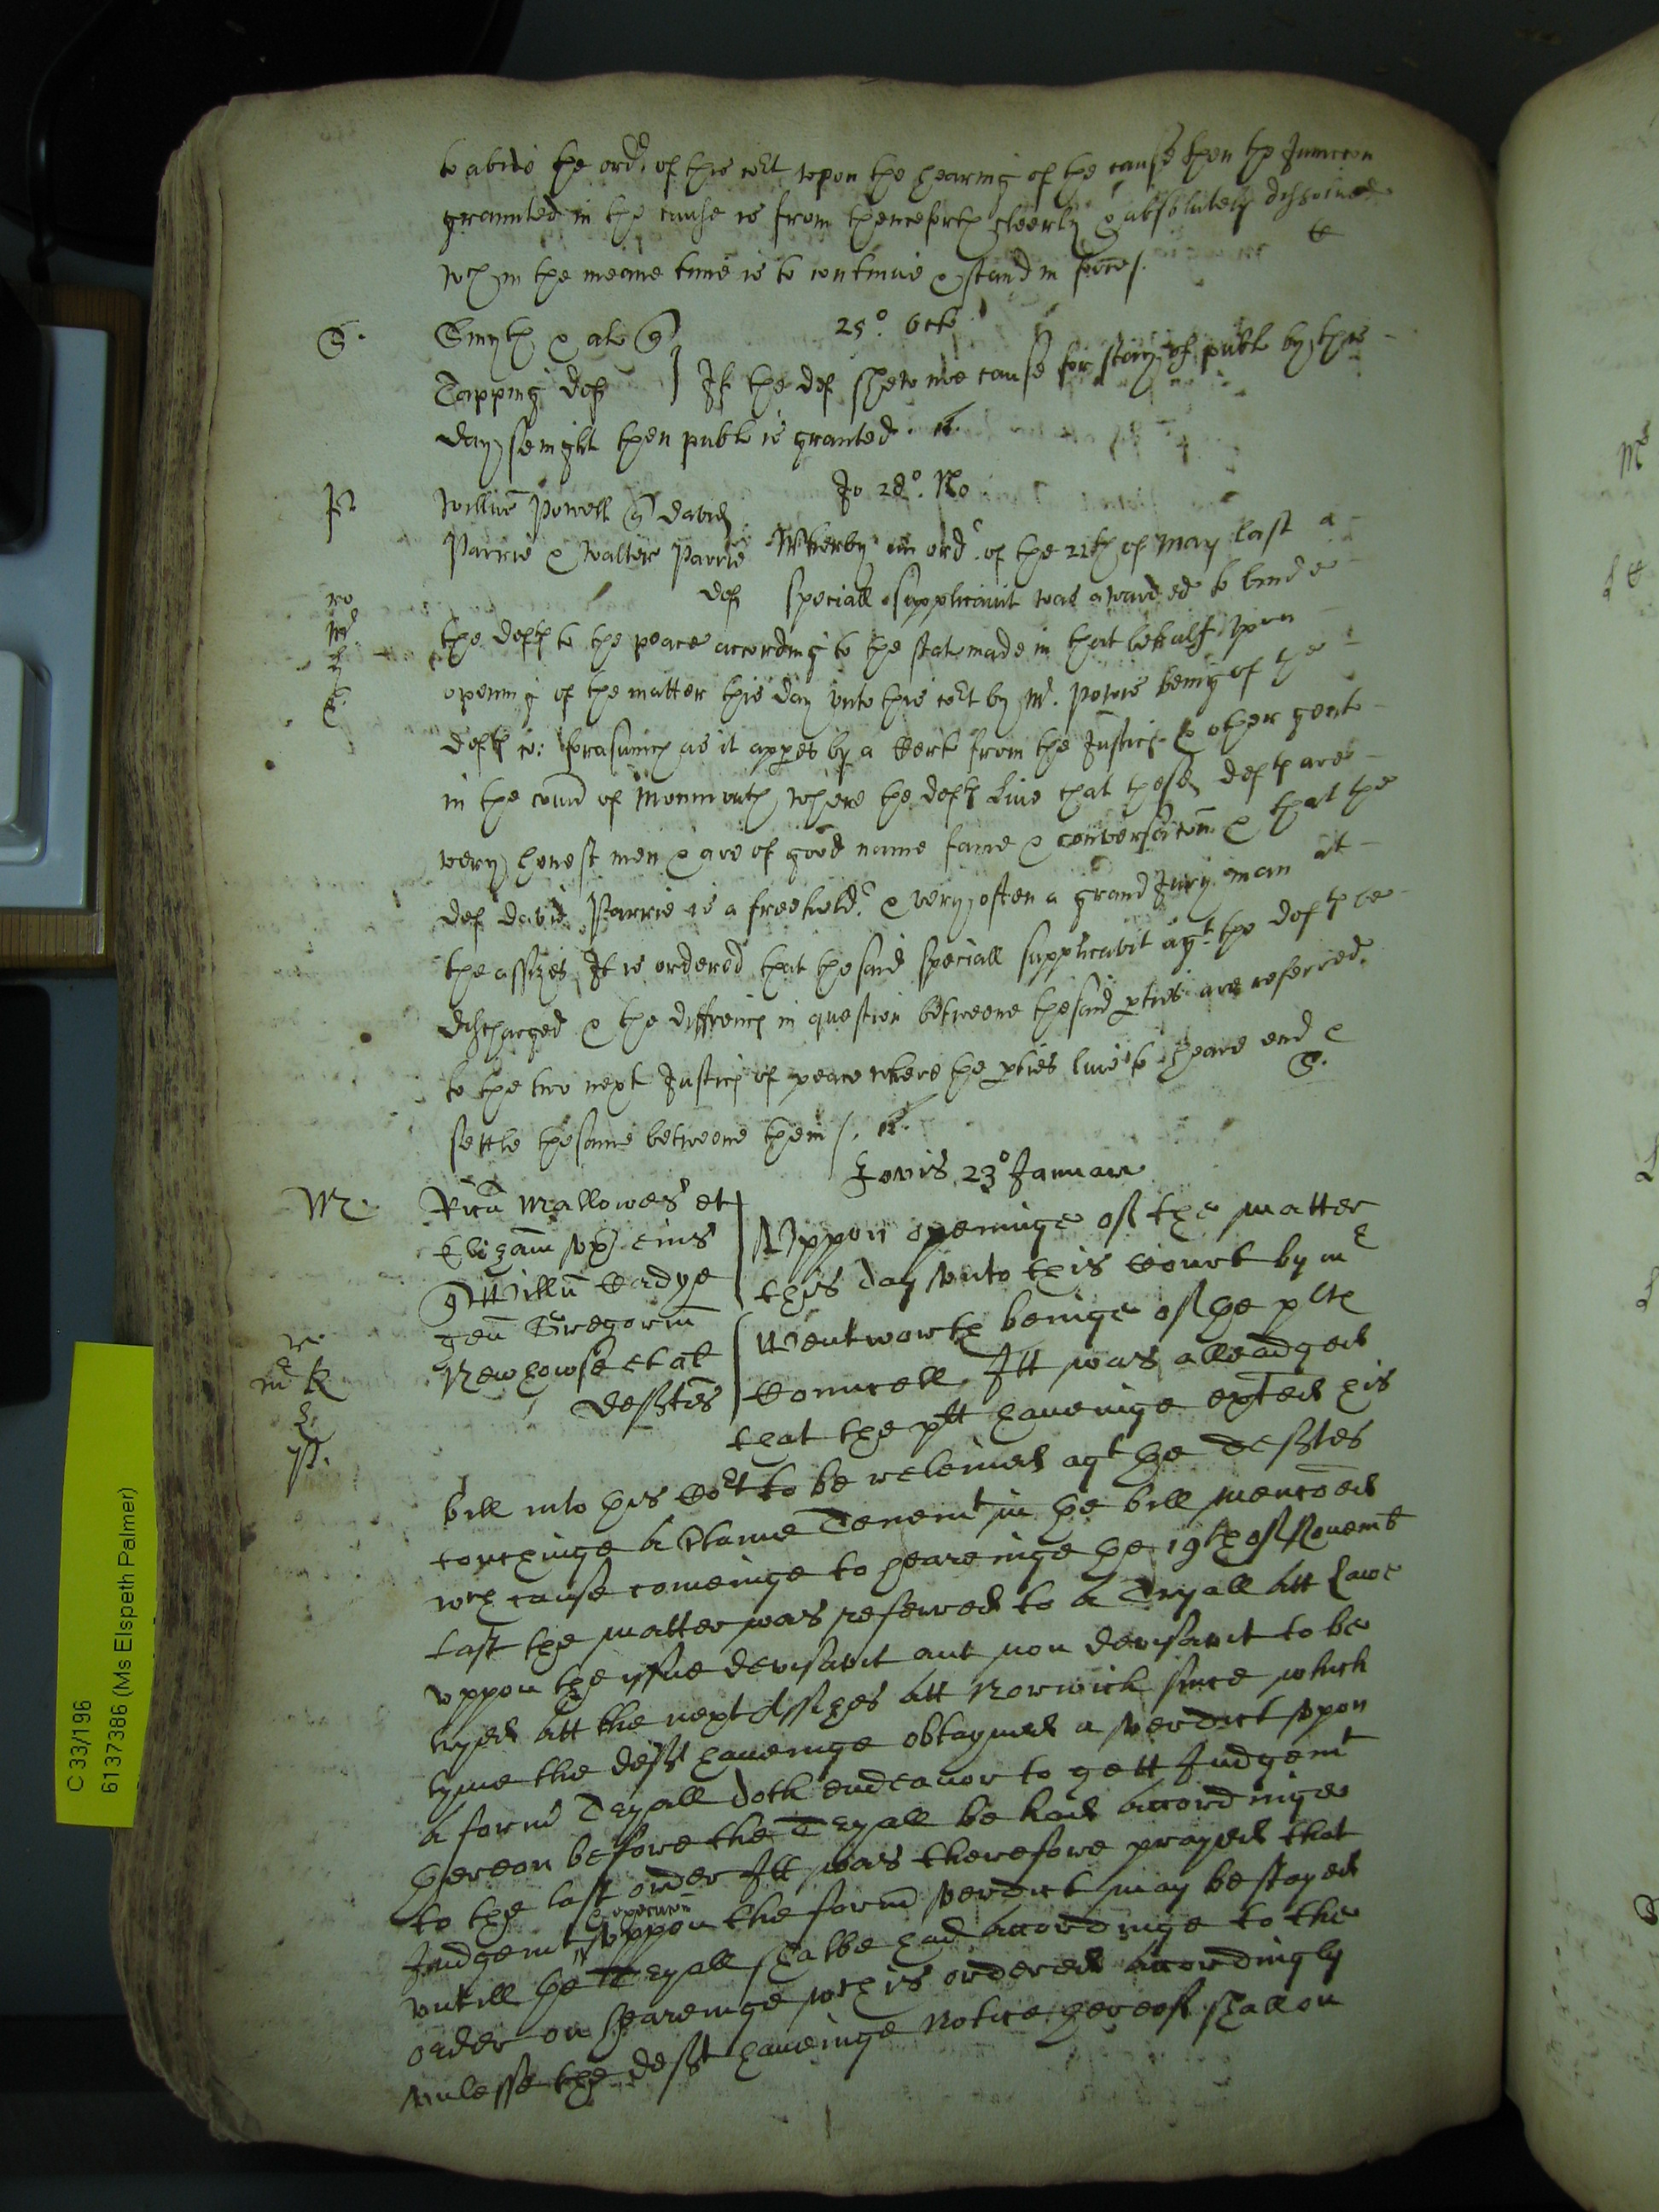 to abide the ordr of this co:rt vpon the hearing of the cause then the Iniuncon
graunted in the cause is from thenceforth cleerly & absolutely dissolued
wch in the meane tyme is to continue & stand in force /.
S. Smyth & al
25o. Octo
Tapping def } If the def shew noe cause for stay of publ by this
day senight then publ is granted.
P Willm Powell David
Io 28o. No
Parrie & Walter Parrie Wherby an ordr of the 21th of May last a
def speciall supplicavit was awarded to binde
the defts to the peace according to the stat made in that behalf Vpon
opening of the matter this day vnto this co:rt by Mr. Powis being of the
defts co: forasmuch as it appes by a Cert from the Justics & other gent
in the count of Monmouth where the defts live that these defts are
very honest men & are of good name fame & conversacon & that the
def David Parrie is a freeholdr & very often a grand Jury man at
the assizes It is ordered that the said speciall supplicavit agt the defts be
discharged & the differencs in question betweene the said pties are referred
to the two next Justics of peace where the pties live to heare end &
settle the same betweene them /.
Jovis 23o Januarii
M. Ricu Mallowes et
Elizam vx eius
Willu Cadye
gen Gregoriu
Newhowse et al
Deftes
Vppon openinge of the matter
this day vnto this Court by mr
Wentworth beinge of the plts
Councell Itt was alleadged
that the plt haveinge exhted his
bill into this Cort to be releived agt the Deftes
touchinge a Tenemt in the bill mencoed
wch cause comeinge to heareinge the 19th of Novemb
last the matter was referred to a Tryall att Lawe
vppon the issue devisavit aut non devisavit to be
tryed att the next Assizes att Norwich since which
tyme the deft haveinge obtayned a verdict vpon
a formr Tryall doth endeavor to gett Judgemt
thereon before the Tryall be had accordinge
to the last order Itt was therefore prayed that
Judgemt & execucon vppon the formr verdict may be stayed
vntill the Tryall shalbe had accordinge to the
order on heareinge wch is ordered accordingly
vnlesse the deft haveinge notice hereof shall on
C 33/196
6137386 (Ms Elspeth Palmer)